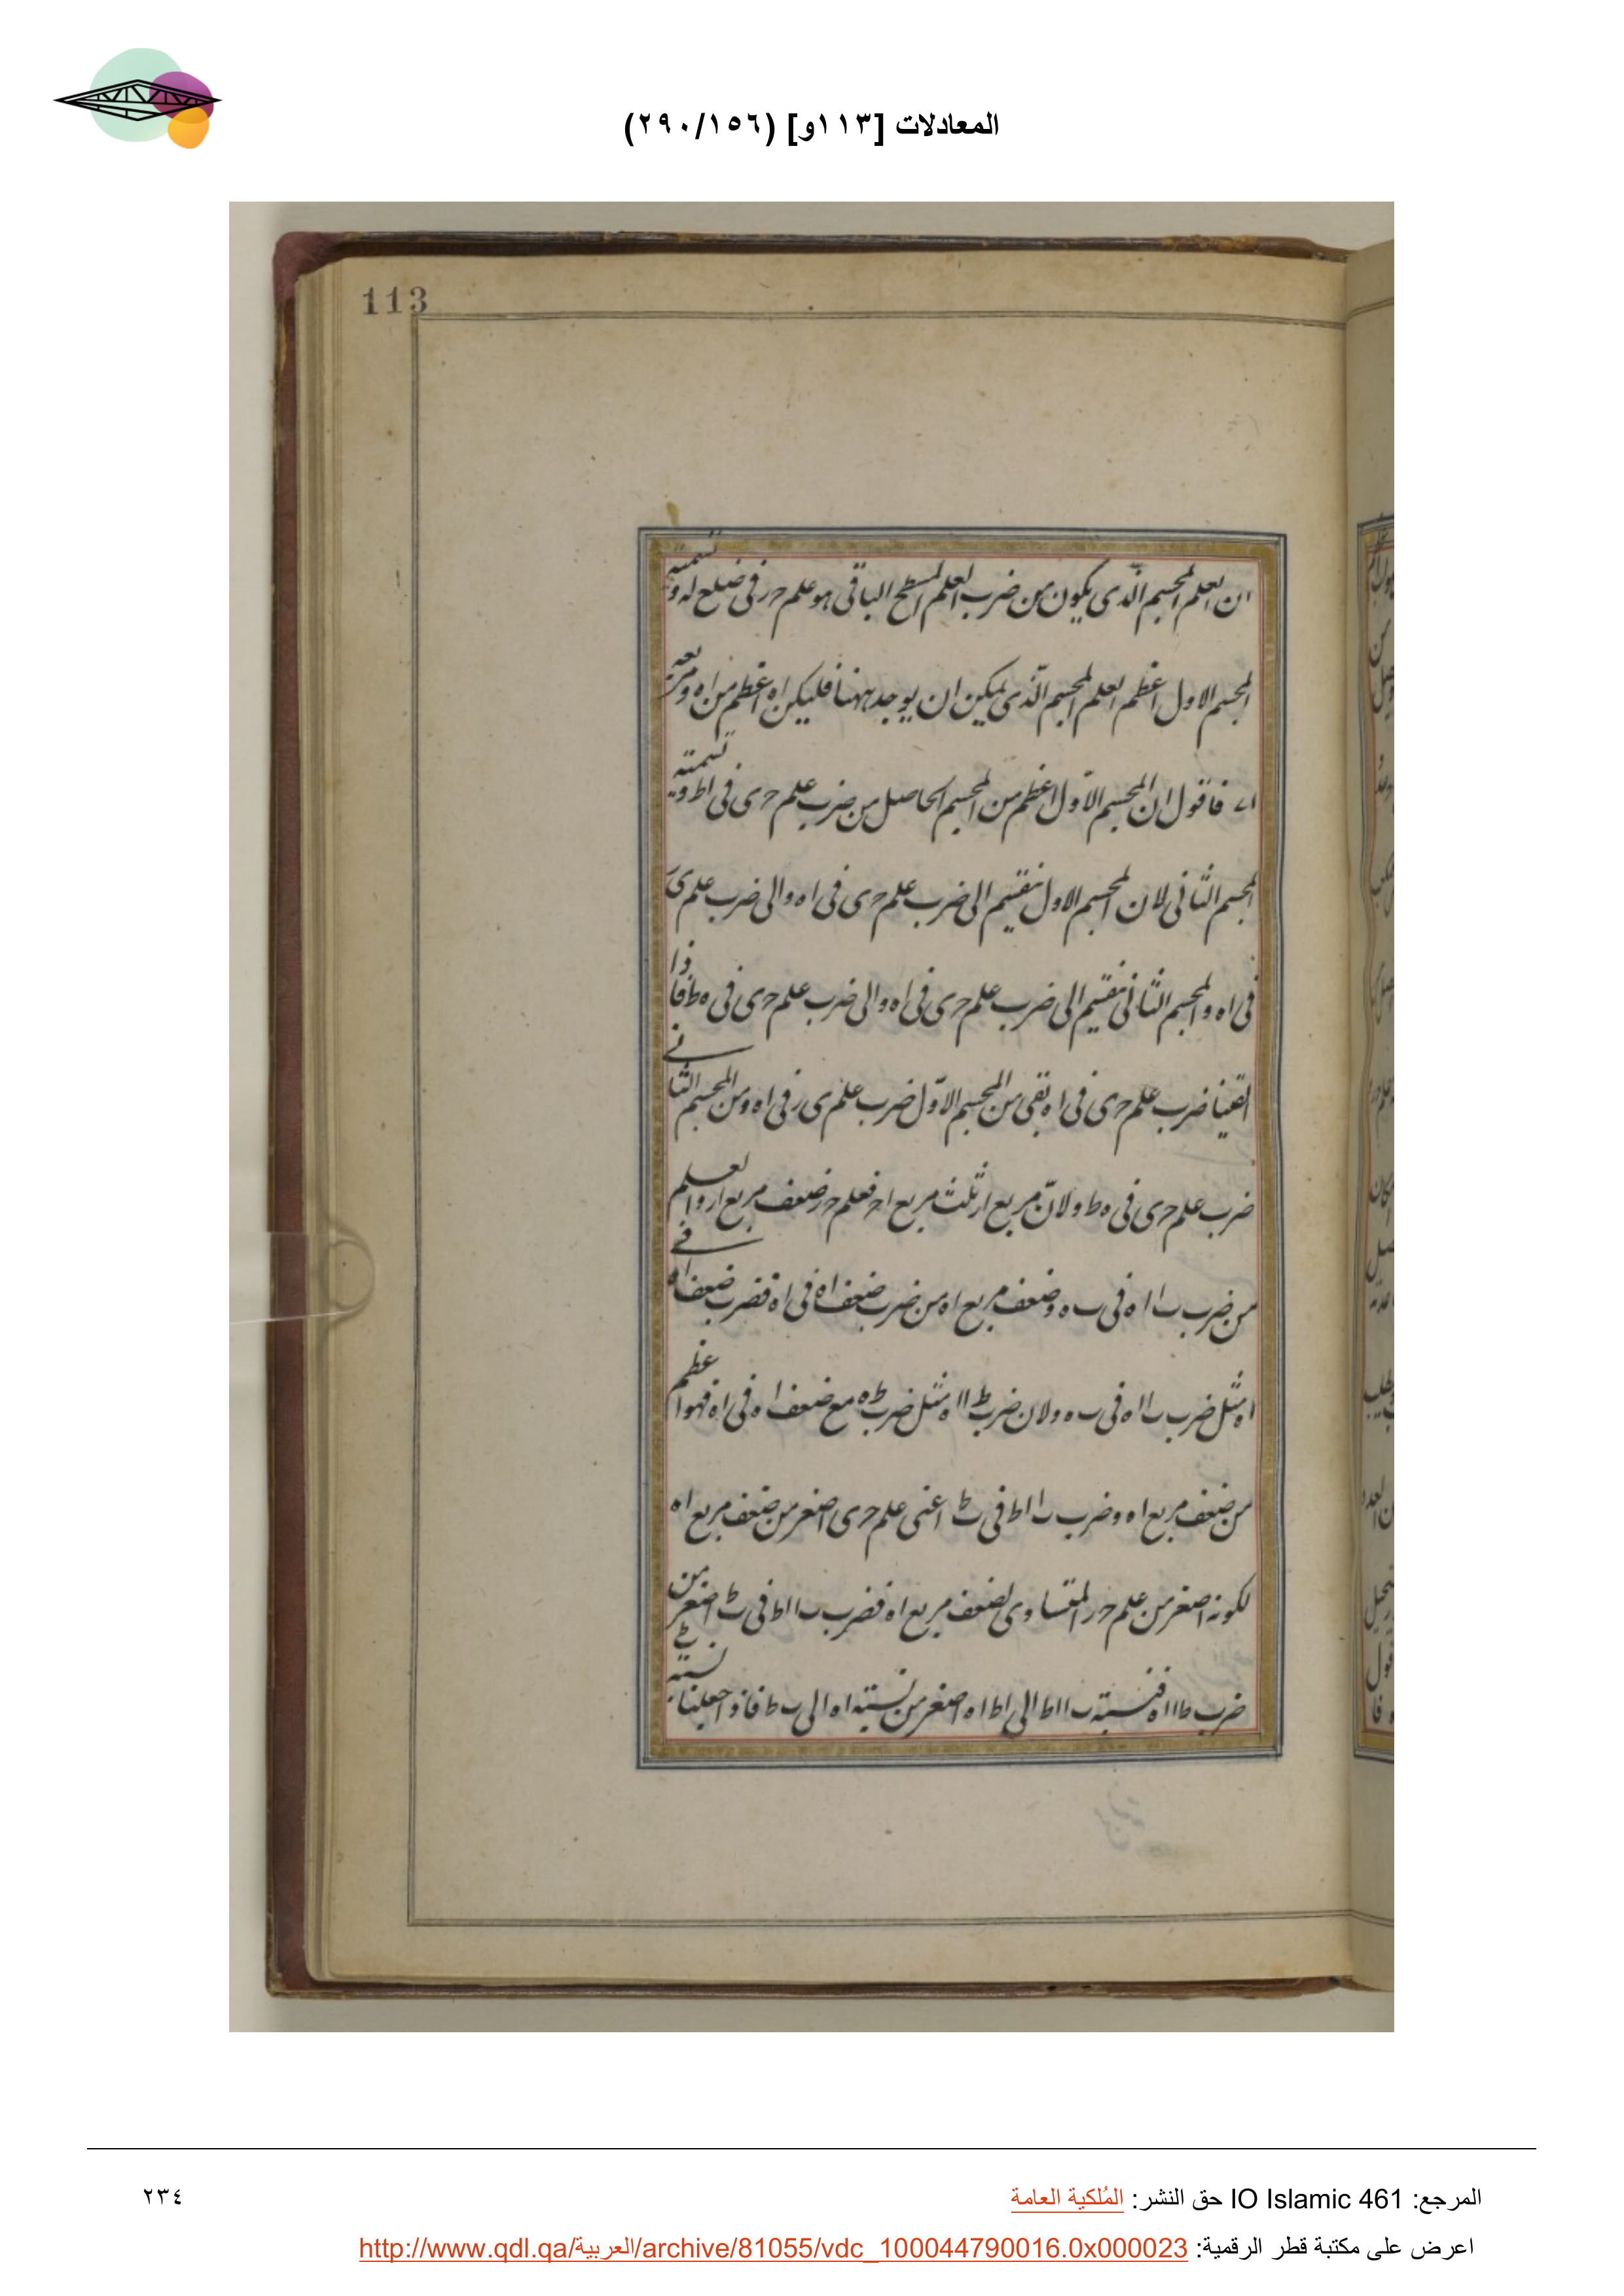 المعادلات [١١٣و] (٢٩٠/١٥٦)
113
ان العلم المجسم الذى يكون من ضرب العلم المسطح الباقى هو علم حر فى ضلع له ونسميه
المجسم الاول اعظم العلم المجسم الذى يمكن ان يوجد ههنا فليكن اه اعظم من اه ومربعه
فاقول ان المجسم الاول اعظم من المجسم الحاصل من ضرب علم حى فى اط ونسميه
المجسم الثانى لان المجسم الاول ينقسم الى ضرب علم حى فى اه والى ضرب علم ى
فى اه والمجسم الثانى ينقسم الى ضرب علم حى فى اه والى ضرب علم حى فى ه ط فاذا
القينا ضرب علم حى فى اه بقى من المجسم الاول ضرب علم ى ر فى اه ومن المجسم الثانى
ضرب علم حى فى ه ط ولان مربع ار ثلث مربع اح فعلم حر ضعف مربع ار والعلم
من ضرب ب ا اه فى ب ه وضعف مربع اه من ضرب ضعف اه فى اه فضرب ضعف اه فى
اه مثل ضرب ب ا اه فى ب ه ولان ضرب ط ا اه مثل ضرب ط ه مع ضعف اه فى اه فهو اعظم
من ضعف مربع اه وضرب ب ا اط فى ب ط اعنى علم حى اصغر من ضعف مربع اه
لكونه اصغر من علم حر المتساوى لضعف مربع اه فضرب ب ا اط فى ب ط اصغر من
ضرب ط ا اه فنسبة ب ا اط الى اط اه اصغر من نسبة اه الى ب ط فاذا جعلنا نسبة
المرجع: IO Islamic 461 حق النشر: المُلكية العامة
٢٣٤
اعرض على مكتبة قطر الرقمية: http://www.qdl.qa/العربية/archive/81055/vdc_100044790016.0x000023